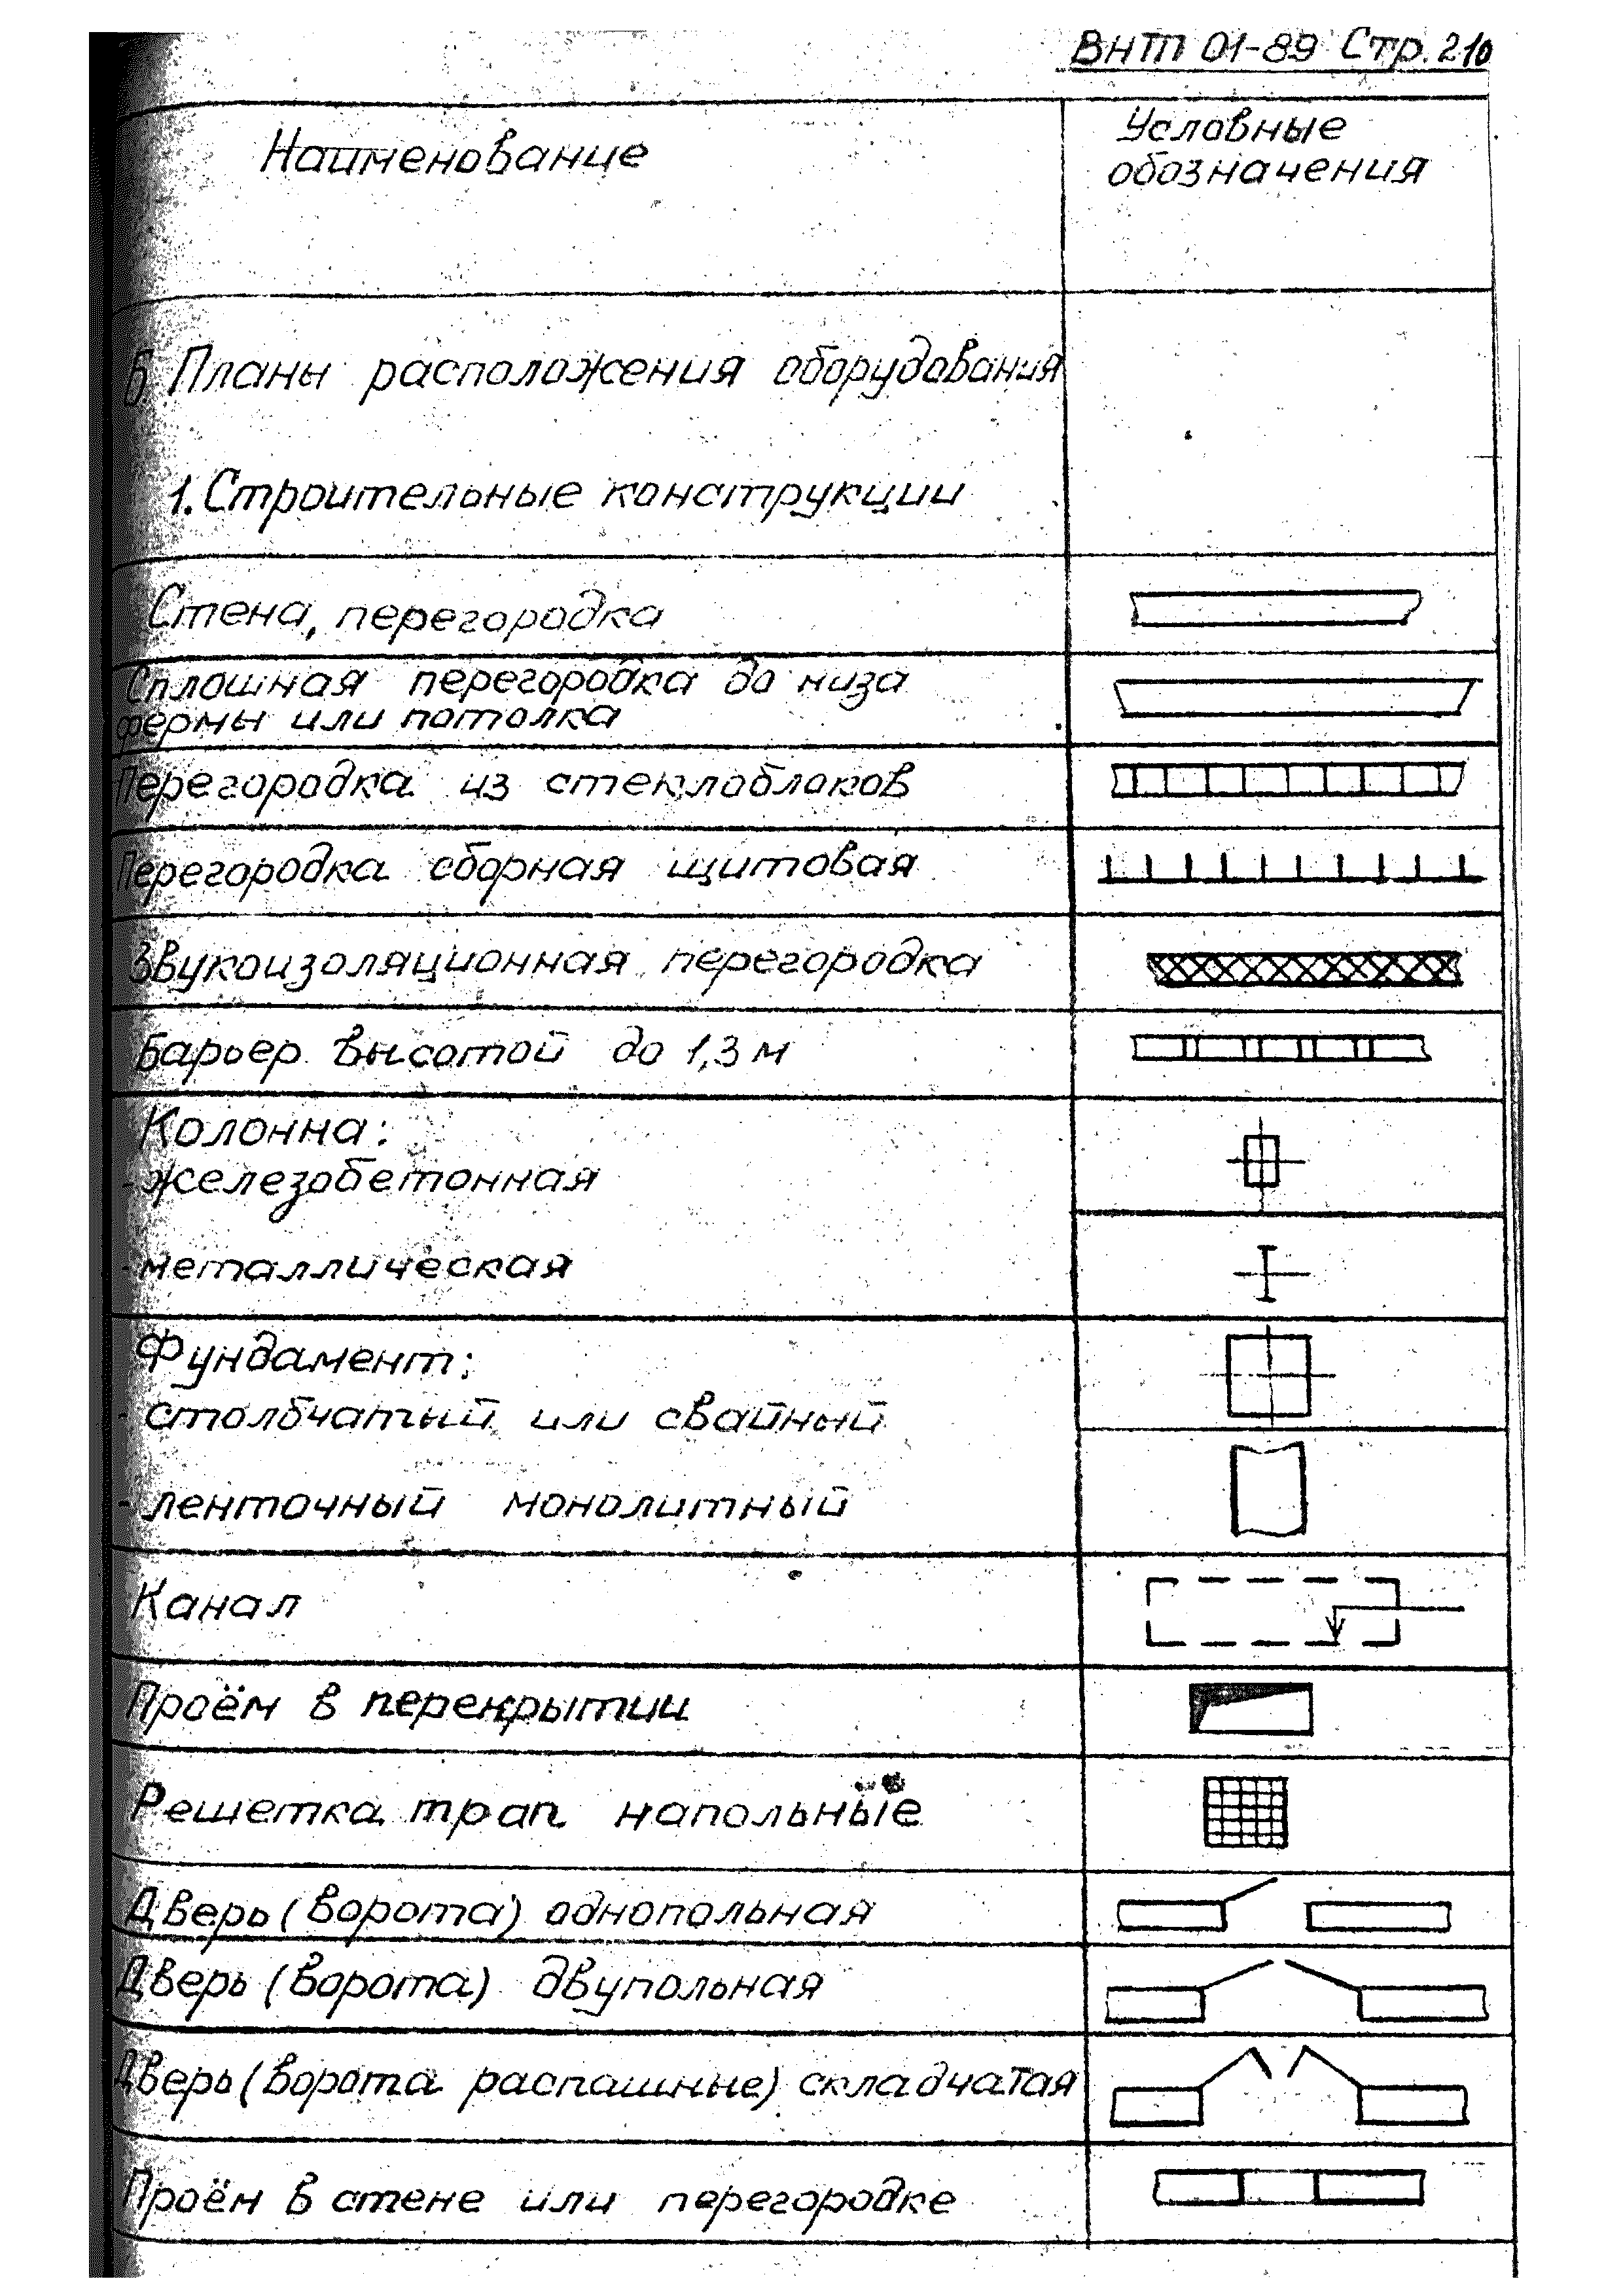 ВНТП 01-89 Стр. 210
Наименование
Условные
обозначения
Б. Планы расположения оборудования
1. Строительные конструкции
Стена, перегородка
Сплошная перегородка до низа
фермы или потолка
Перегородка из стеклоблоков
Перегородка сборная щитовая
Звукоизоляционная перегородка
Барьер высотой до 1,3 м
Колонна:
- железобетонная
- металлическая
Фундамент:
- столбчатый или свайный
- ленточный монолитный
Канал
Проём в перекрытии
Решетка трап напольные
Дверь (ворота) однопольная
Дверь (ворота) двупольная
Дверь (ворота распашные) складчатая
Проём в стене или перегородке